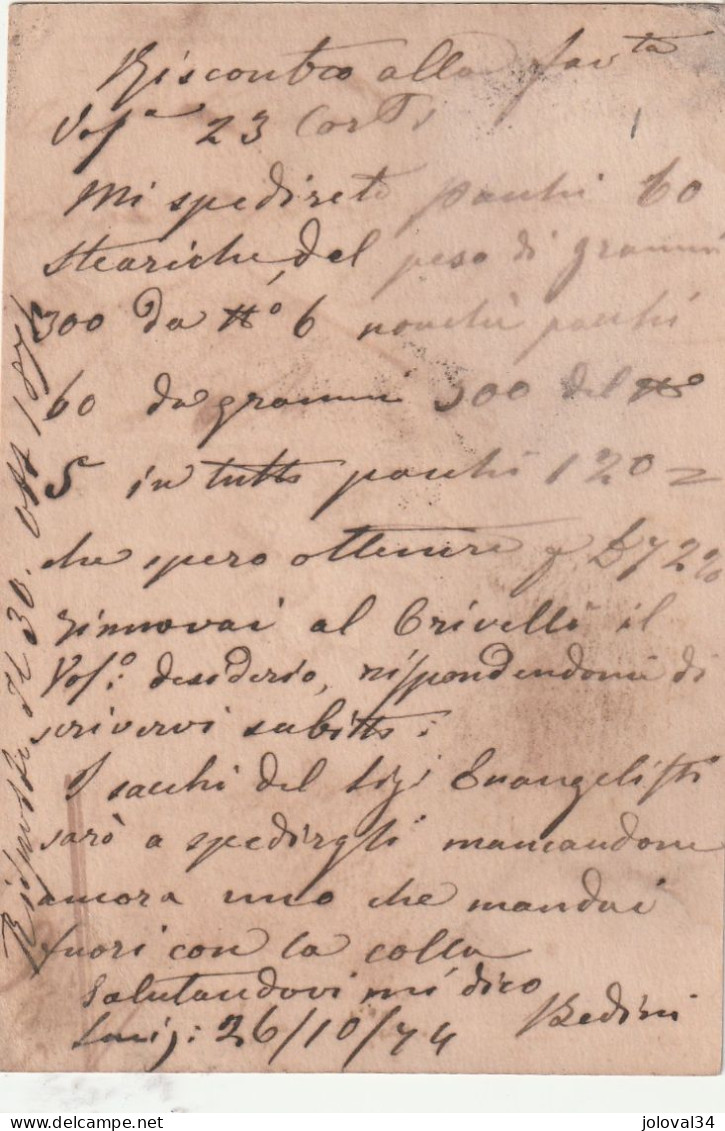 Riscontro alla favta
Vosa 23 Corte
Mi spedirete pacchi 60
steariche, del peso di grammi
300 da No 6 nonchè pacchi
60 da grammi 300 del No
5 in tutto pacchi 120
che spero ottenere 72%
rinnovai al Crivelli il
Voso: desiderio, rispondendomi di
scrivervi subitto:
I sacchi del Sigr Evangelisti
sarò a spedirgli mancandone
ancora uno che mandai
fuori con la colla
Salutandovi mi dico
26/10/74 Bedini
Risposto il 30. Ott 1874
joloval34